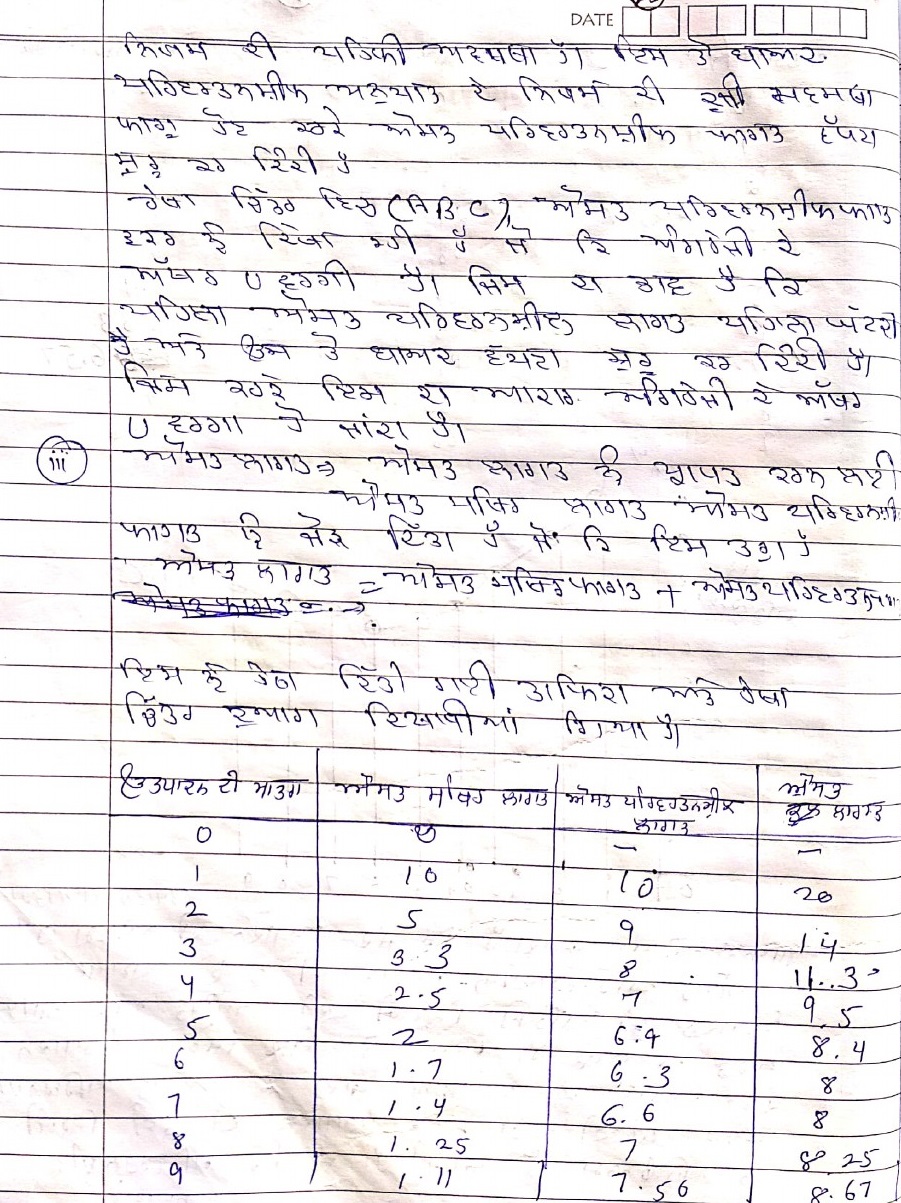 DATE
ਨਿਯਮ ਦੀ ਪਹਿਲੀ ਅਵਸਥਾ ਹੈ। ਇਸ ਤੋਂ ਬਾਅਦ
ਪਰਿਵਰਤਨਸ਼ੀਲ ਅਨੁਪਾਤ ਦੇ ਨਿਯਮ ਦੀ ਦੂਜੀ ਅਵਸਥਾ
ਲਾਗੂ ਹੋਣ ਕਰਕੇ ਔਸਤ ਪਰਿਵਰਤਨਸ਼ੀਲ ਲਾਗਤ ਵੱਧਣ
ਸ਼ੁਰੂ ਕਰ ਦਿੰਦੀ ਹੈ
ਰੇਖਾ ਚਿੱਤਰ ਵਿਚ (ABC), ਔਸਤ ਪਰਿਵਰਨਸ਼ੀਲ ਲਾਗਤ
ਵਕਰ ਨੂੰ ਦਿਖਾ ਰਹੀ ਹੈ ਜੋ ਕਿ ਅੰਗਰੇਜੀ ਦੇ
ਅੱਖਰ U ਵਰਗੀ ਹੈ। ਜਿਸ ਦਾ ਭਾਵ ਹੈ ਕਿ
ਪਹਿਲਾ ਔਸਤ ਪਰਿਵਰਨਸ਼ੀਲ ਲਾਗਤ ਪਹਿਲਾ ਘੱਟਦੀ
ਹੈ ਅਤੇ ਉਸ ਤੋਂ ਬਾਅਦ ਵੱਧਣਾ ਸ਼ੁਰੂ ਕਰ ਦਿੰਦੀ ਹੈ।
ਜਿਸ ਕਰਕੇ ਇਸ ਦਾ ਆਕਾਰ ਅੰਗਰੇਜੀ ਦੇ ਅੱਖਰ
U ਵਰਗਾ ਹੋ ਜਾਂਦਾ ਹੈ।
iii ਔਸਤ ਲਾਗਤ ⇒ ਔਸਤ ਲਾਗਤ ਨੂੰ ਪ੍ਰਾਪਤ ਕਰਨ ਲਈ
ਔਸਤ ਸਥਿਰ ਲਾਗਤ ਔਸਤ
ਲਾਗਤ ਨੂੰ ਜੋੜ ਦਿੱਤਾ ਹੈ ਜੋ ਕਿ ਇਸ ਤਰ੍ਹਾਂ ਹੈ
ਔਸਤ ਲਾਗਤ = ਔਸਤ ਸਥਿਰ ਲਾਗਤ + ਔਸਤ
ਇਸ ਨੂੰ ਹੇਠ ਦਿੱਤੀ ਗਈ ਤਾਲਿਕਾ ਅਤੇ ਰੇਖਾ
ਚਿੱਤਰ ਦੁਆਰਾ ਗਿਆ ਹੈ।
ਉਤਪਾਦਨ ਦੀ ਮਾਤਰਾ ਔਸਤ ਸਥਿਰ ਲਾਗਤ ਔਸਤ ਪਰਿਵਰਤਨਸ਼ੀਲ ਲਾਗਤ ਔਸਤ ਲਾਗਤ
0 – –
1 10 10 20
2 5 9 14
3 3.3 8 11.3
4 2.5 7 9.5
5 2 6.4 8.4
6 1.7 6.3 8
7 1.4 6.6 8
8 1.25 7 8.25
9 1.11 7.56 8.67